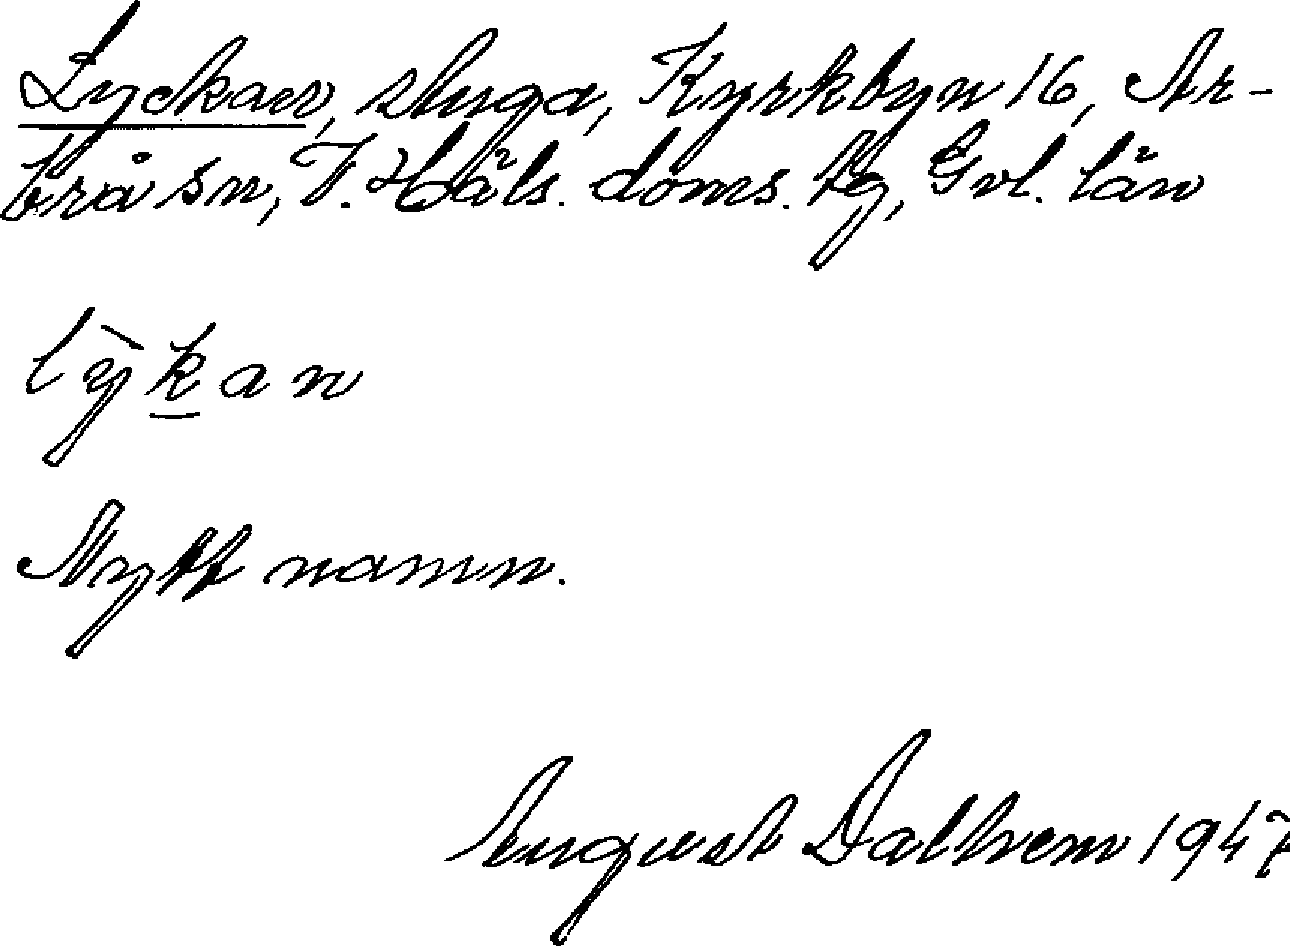 Lyckan, stuga, Kyrkbyn 16, Ar-
brå sn, V. Häls. doms. hg, Gvl. län
lỳkan
Nytt namn.
August Dalhem 1947